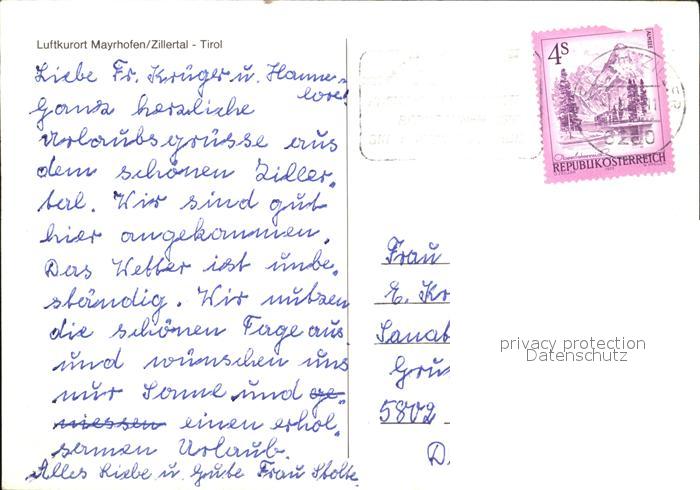 Luftkurort Mayrhofen/Zillertal - Tirol
Liebe Fr. Krüger u. Hanne-
lore!
Ganz herzliche
Urlaubsgrüsse aus
dem schönen Ziller-
tal. Wir sind gut
hier angekommen.
Das Wetter ist unbe-
ständig. Wir nutzen
die schönen Tage aus
und wünschen uns
nur Sonne und ge-
niessen einen erhol-
samen Urlaub.
Alles Liebe u. Gute Frau Stolte
4S
REPUBLIK ÖSTERREICH
6290
Frau
E. Kr
Sanat
Grü
5802
D.
privacy protection
Datenschutz